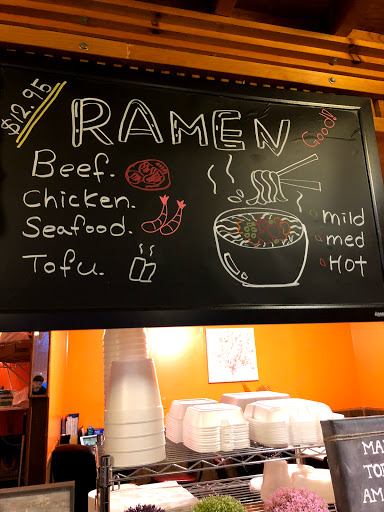 $12.95
RAMEN
Good!!
Beef.
Chicken.
Seafood.
Tofu.
mild
med
Hot